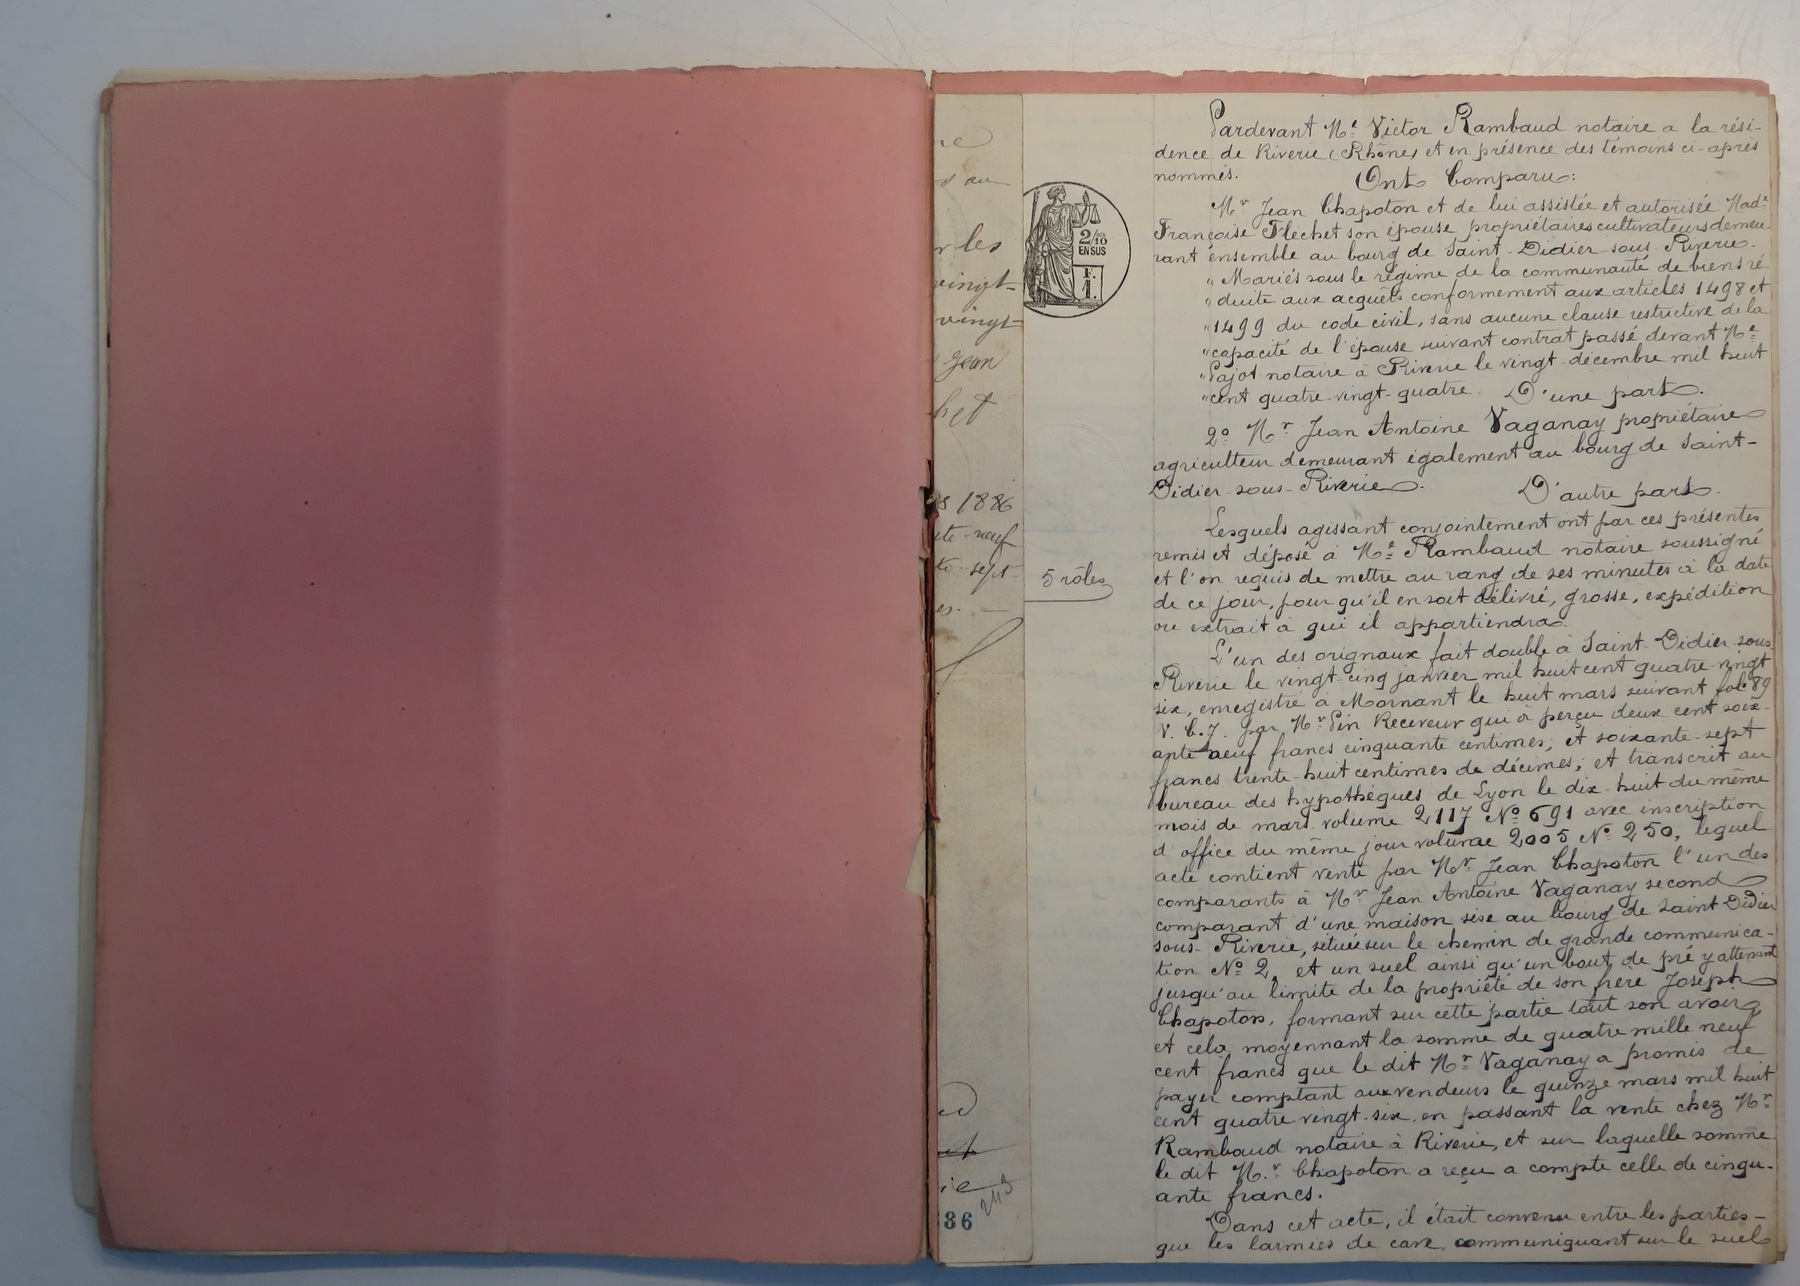 s au
r les
vingt-
vingt-
Jean
het
s 1886
te-neuf
te-sept
es. —
ie
243
86
2/10
EN SUS
F.
1.
5 rôles
Pardevant Me Victor Rambaud notaire a la rési-
dence de Riverie (Rhône) et en présence des témoins ci-après
nommés. Ont Comparu:
Mr Jean Chapoton et de lui assistée et autorisée Made
Françoise Fléchet son épouse propriétaires cultivateurs demeu
rant ensemble au bourg de Saint-Didier-sous-Riverie.
" Mariés sous le régime de la communauté de biens ré-
" duite aux acquêts conformement aux articles 1498 et
" 1499 du code civil, sans aucune clause restrictive de la
" capacité de l'épouse suivant contrat passé devant Me
" Pajot notaire à Riverie le vingt-décembre mil huit
" cent quatre-vingt-quatre. D'une part.
2o Mr Jean Antoine Vaganay propriétaire
agriculteur demeurant également au bourg de Saint-
Didier-sous-Riverie. D'autre part.
Lesquels agissant conjointement ont par ces présentes
remis et déposé à Me Rambaud notaire soussigné
et l'on requis de mettre au rang de ses minutes à la date
de ce jour, pour qu'il en soit délivré, grosse, expédition
ou extrait à qui il appartiendra.
L'un des orignaux fait double à Saint-Didier-sous-
Riverie le vingt-cinq janvier mil huit cent quatre-vingt
six, enregistré à Mornant le huit mars suivant folo 89
V. C. 7. par Mr Pin Receveur qui à perçu deux cent soix-
ante neuf francs cinquante centimes; et soixante-sept
francs trente-huit centimes de décimes; et transcrit au
bureau des hypothèques de Lyon le dix-huit du même
mois de mars volume 2117 No 691 avec inscription
d'office du même jour volume 2005 No 250, lequel
acte contient vente par Mr Jean Chapoton l'un des
comparants à Mr Jean Antoine Vaganay second
comparant d'une maison sise au bourg de Saint Didier
sous-Riverie, située sur le chemin de grande communica-
tion No 2, et un suel ainsi qu'un bout de pré y attenant
jusqu'au limite de la propriété de son frère Joseph
Chapoton, formant sur cette partie tout son avoir,
et cela moyennant la somme de quatre mille neuf
cent francs que le dit Mr Vaganay a promis de
payer comptant aux vendeurs le quinze mars mil huit
cent quatre vingt-six en passant la vente chez Mr
Rambaud notaire à Riverie, et sur laquelle somme
le dit Mr Chapoton a reçu a compte celle de cinqu-
ante francs.
Dans cet acte, il était convenu entre les parties-
que les larmies de cave, communiquant sur le suel